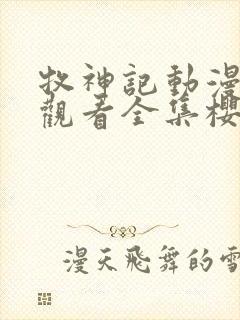 牧神記動漫
觀看全集櫻
漫天飛舞的雪